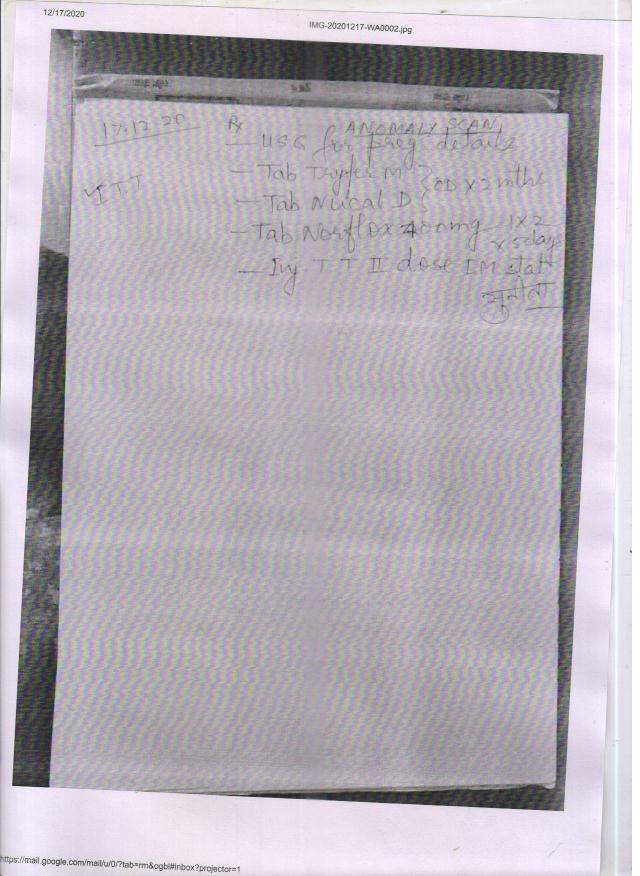 12/17/2020
IMG-20201217-WA0002.jpg
17.12.20
Rx
ANOMALY SCAN
— USG for preg details
— Tab Tryfer M
— Tab Nucal D } OD x 2 mths
I T.T
— Tab Norflox 400mg 1x2
x 5days
— Inj. T T II dose IM stat
सुनीता
https://mail.google.com/mail/u/0/?tab=rm&ogbl#inbox?projector=1